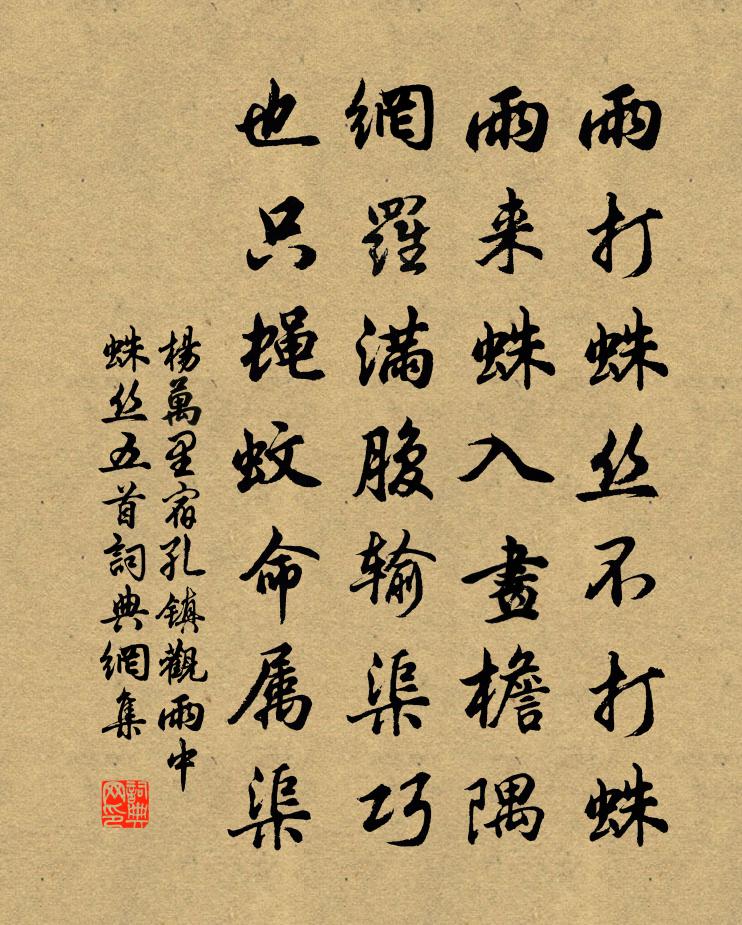 雨打蛛丝不打蛛
雨来蛛入畫檐隅
網羅滿腹输渠巧
也只蝇蚊命属渠
楊萬里宿孔镇觀雨中
蛛丝五首詞典網集
詞典网印